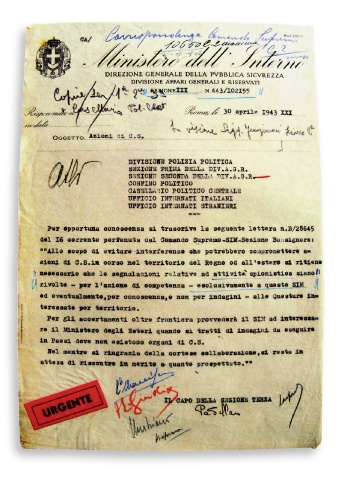 CA/ Corrispondenza Comando Supremo
Ministero dell'Interno
DIREZIONE GENERALE DELLA PVBBLICA SICVREZZA
DIVISIONE AFFARI GENERALI E RISERVATI
SEZIONE III N 643/102155
Roma, li 30 aprile 1943 XXI
OGGETTO: Azioni di C.S.
DIVISIONE POLIZIA POLITICA
SEZIONE PRIMA DELLA DIV.A.G.R.
SEZIONE SECONDA DELLA DIV.A.G.R.
CONFINO POLITICO
CASELLARIO POLITICO CENTRALE
UFFICIO INTERNATI ITALIANI
UFFICIO INTERNATI STRANIERI
Per opportuna conoscenza si trascrive la seguente lettera n.B/28645
del 16 corrente pervenuta dal Comando Supremo-SIM-Sezione Bonsignore:
"Allo scopo di evitare interferenze che potrebbero compromettere azioni
di C.S. in corso nel territorio del Regno od all'estero si ritiene
necessario che le segnalazioni relative ad attività spionistica siano
rivolte - per l'azione di competenza - esclusivamente a questo SIM
ed eventualmente, per conoscenza, e non per indagini - alle Questure in=
teressate per territorio.
Per gli accertamenti oltre frontiera provvederà il SIM ad interessa=
re il Ministero degli Esteri quando si tratti di indagini da eseguire
in Paesi dove non esistono organi di C.S.
Nel mentre si ringrazia della cortese collaborazione, si resta in
attesa di riscontro in merito a quanto prospettato.""
URGENTE
IL CAPO DELLA SEZIONE TERZA